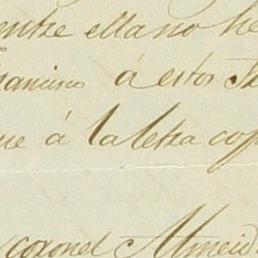 entre ella no he
Francisco á estos
que á la letra cop
coronel Almeid